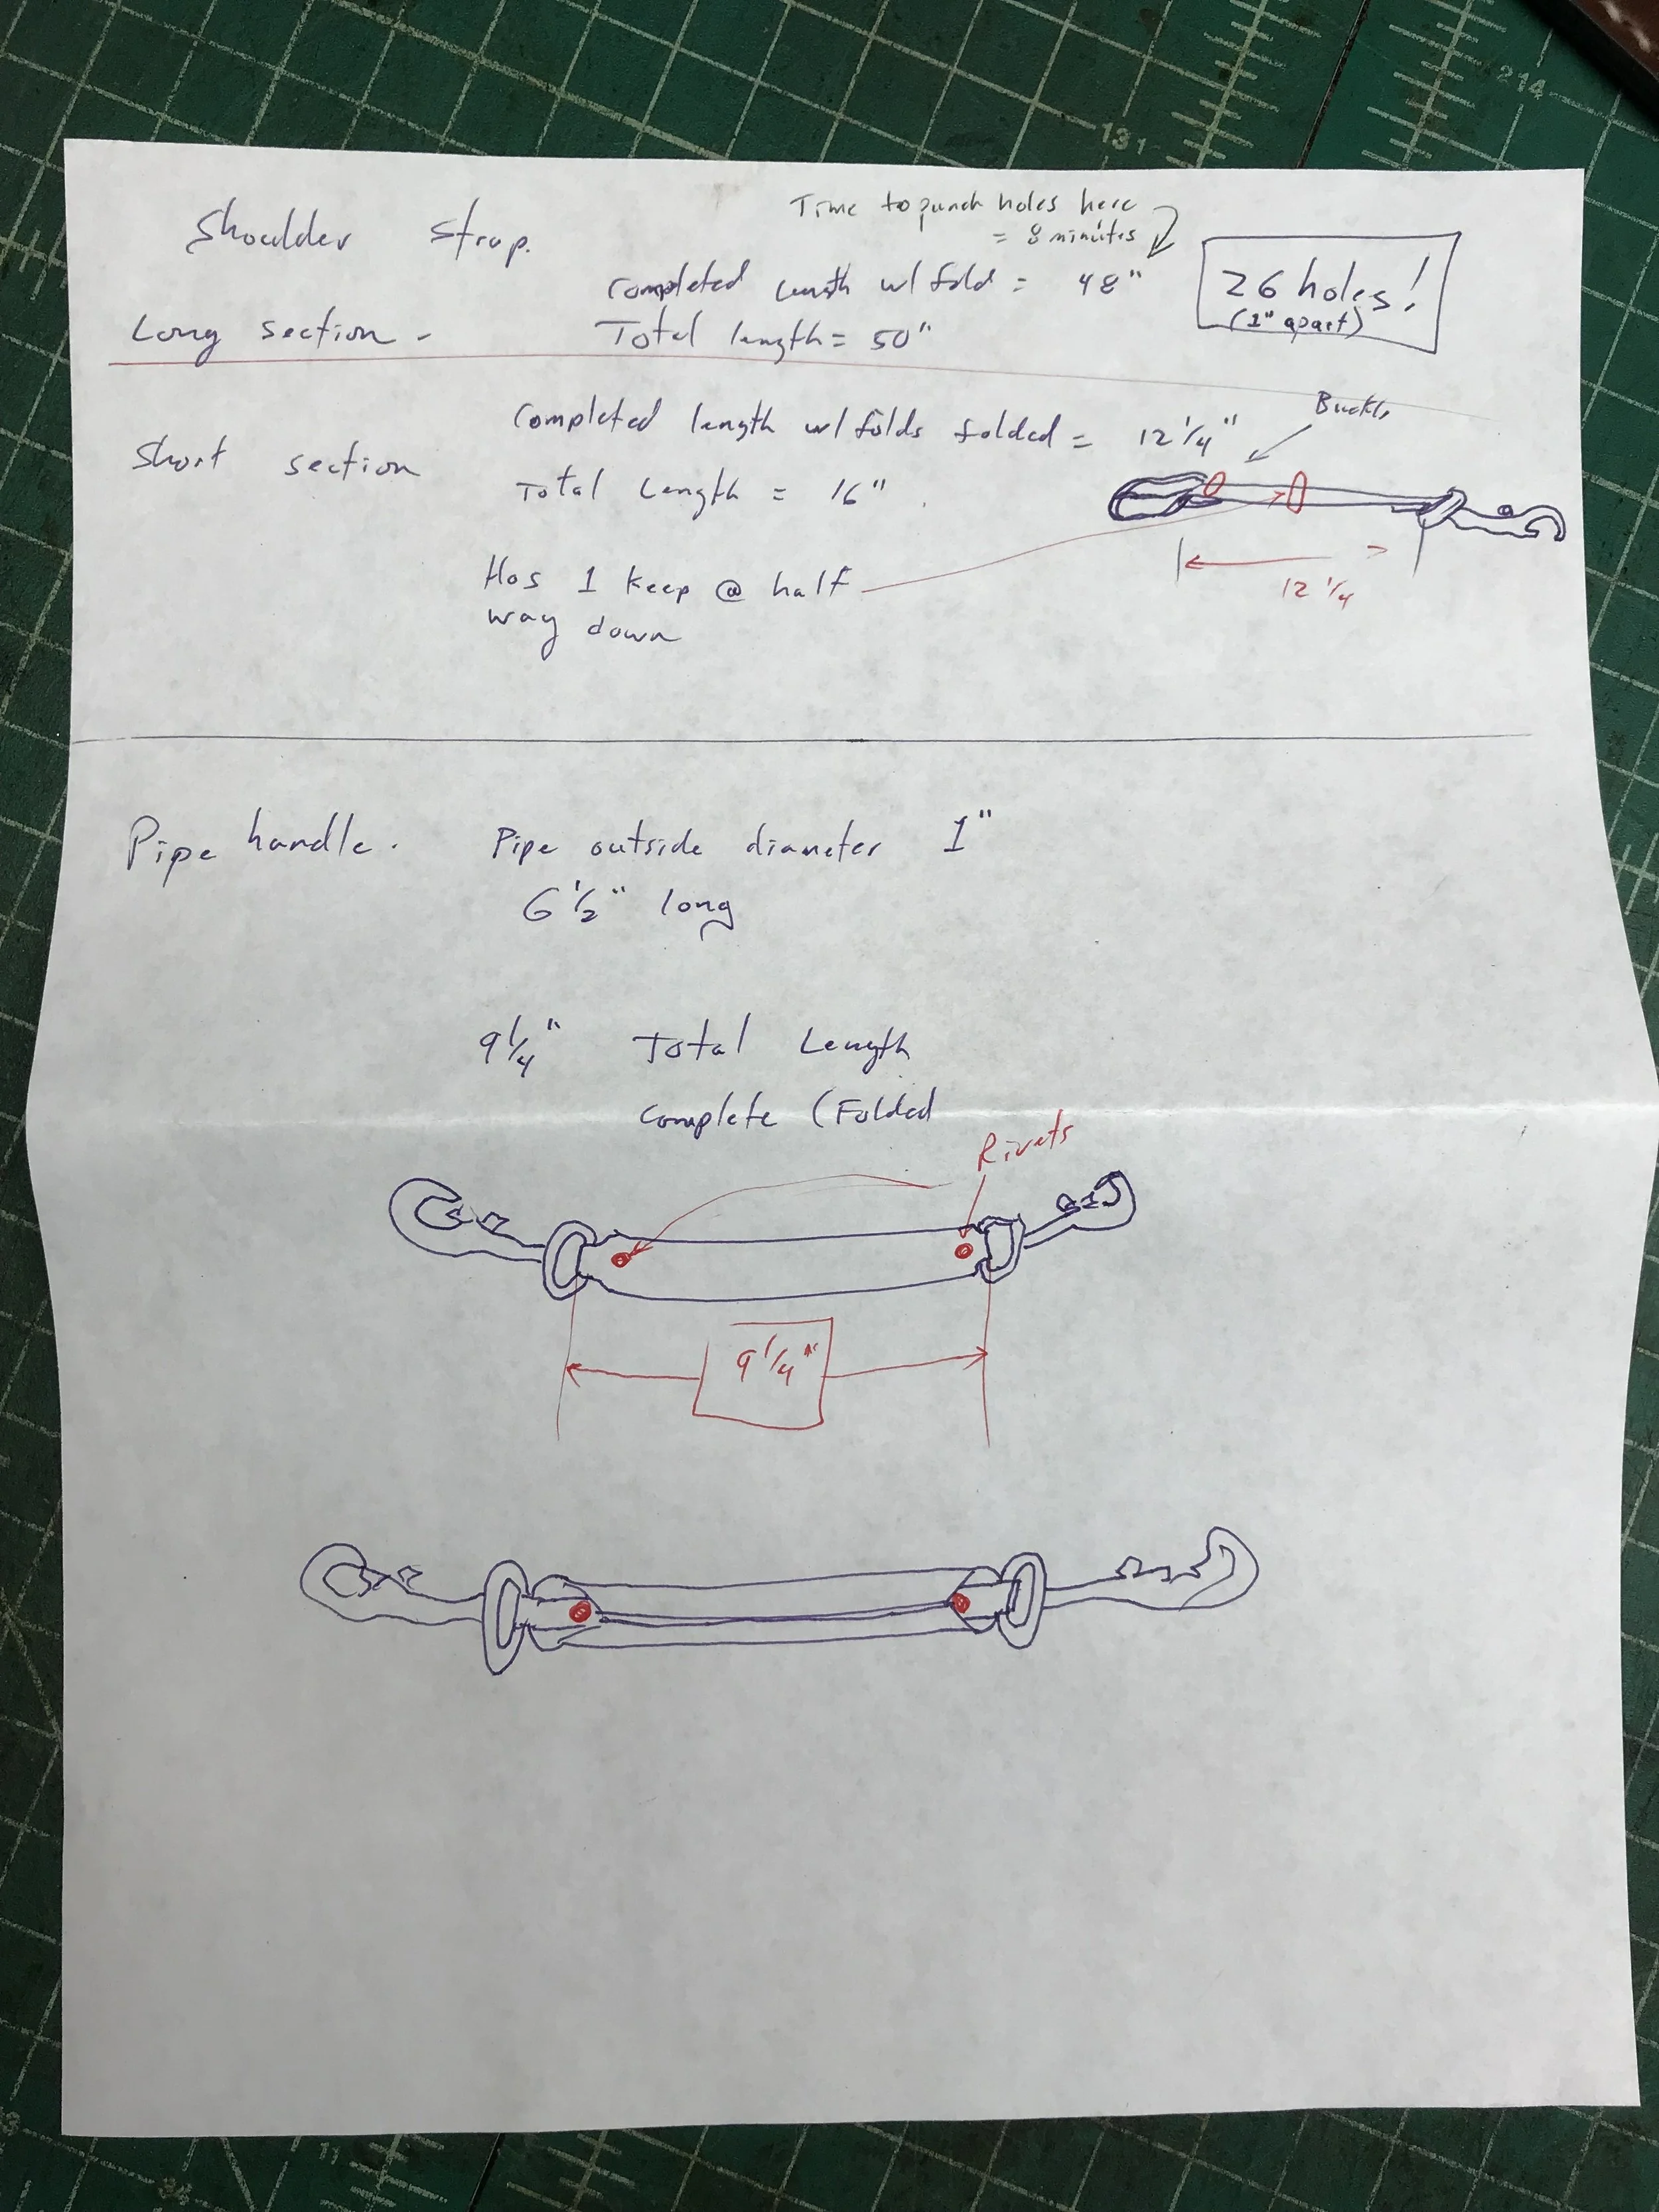 Shoulder strap.
Time to punch holes here
= 8 minutes
Completed Length w/ fold = 48"
26 holes!
(1" apart)
Long section -
Total length = 50"
Completed length w/ folds folded = 12 1/4"
Buckle
Short section
Total Length = 16"
12 1/4
Has 1 keep @ half
way down
Pipe handle.
Pipe outside diameter 1"
6 1/2" long
9 1/4" Total Length
Complete (Folded
Rivets
9 1/4"
13
14